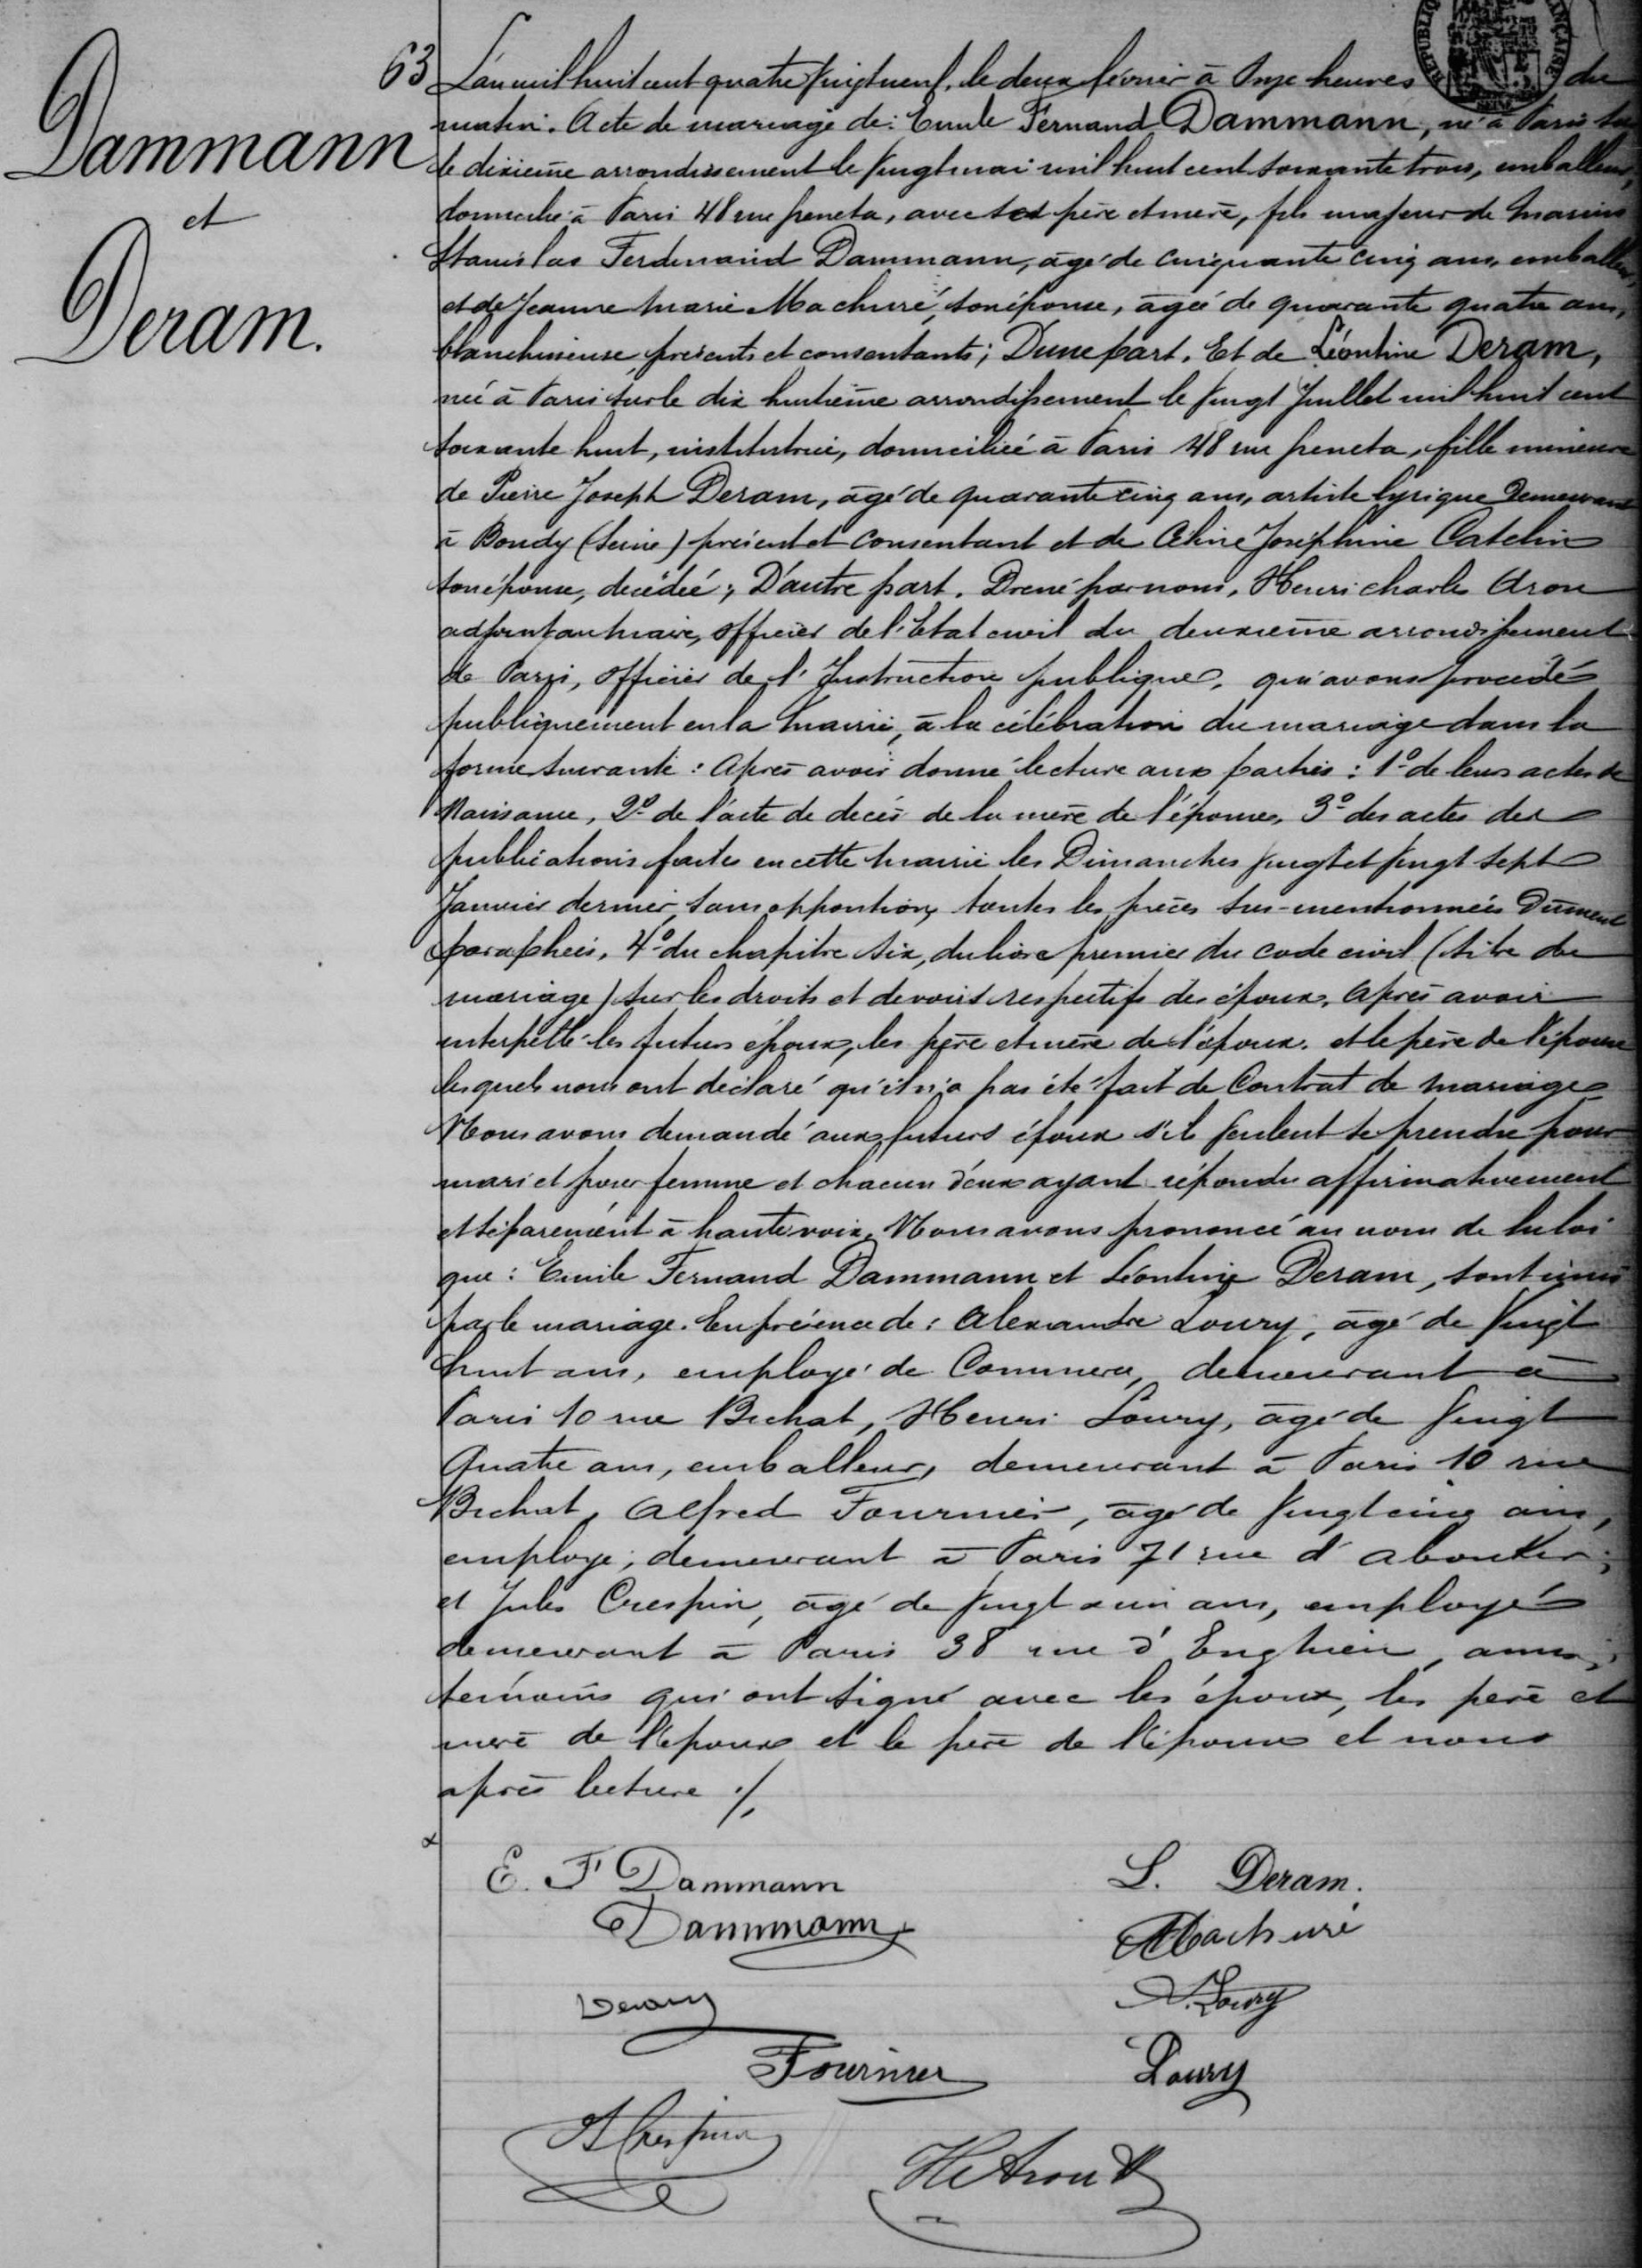 Dammann
et
Deram.
63
RÉPUBLIQUE FRANÇAISE
SEINE
L'an mil huit cent quatre vingt neuf, le deux février à onze heures du
matin. Acte de mariage de : Emile Fernand Dammann, né à Paris sur
le dixième arrondissement le vingt mai mil huit cent soixante trois, emballeur,
domicilié à Paris 48 rue Greneta, avec ses père et mère, fils majeur de Marius
Stanislas Ferdinand Dammann, âgé de cinquante cinq ans, emballeur,
et de Jeanne Marie Machuré, son épouse, âgée de quarante quatre ans,
blanchisseuse, présents et consentants ; D'une part. Et de Léontine Deram,
née à Paris sur le dix huitième arrondissement le vingt Juillet mil huit cent
soixante huit, institutrice, domiciliée à Paris 48 rue Greneta, fille mineure
de Pierre Joseph Deram, âgé de quarante cinq ans, artiste lyrique demeurant
à Bondy (Seine) présent et consentant et de Céline Joséphine Catelin
son épouse, décédée ; D'autre part. Dressé par nous, Henri Charles Aron
adjoint au maire, officier de l'Etat civil du deuxième arrondissement
de Paris, officier de l'Instruction publique, qui avons procédé
publiquement en la mairie, à la célébration du mariage dans la
forme suivante : Après avoir donné lecture aux parties : 1o de leurs actes de
Naissance, 2o de l'acte de décès de la mère de l'épouse, 3o des actes des
publications faites en cette mairie les Dimanches vingt et vingt sept
Janvier dernier, sans opposition, toutes les pièces sus-mentionnées dûment
paraphées, 4o du chapitre six, du livre premier du code civil (titre du
mariage) sur les droits et devoirs respectifs des époux. Après avoir
interpellé les futurs époux, les père et mère de l'époux et le père de l'épouse
lesquels nous ont déclaré qu'il n'a pas été fait de Contrat de mariage
Nous avons demandé aux futurs époux s'ils veulent se prendre pour
mari et pour femme et chacun d'eux ayant répondu affirmativement
et séparément à haute voix, Nous avons prononcé au nom de la loi
que : Emile Fernand Dammann et Léontine Deram, sont unis
par le mariage. En présence de : Alexandre Loury, âgé de vingt
huit ans, employé de Commerce, demeurant à
Paris 10 rue Bichat, Henri Loury, âgé de vingt
quatre ans, emballeur, demeurant à Paris 10 rue
Bichat, Alfred Fournier, âgé de vingt cinq ans,
employé, demeurant à Paris 71 rue d'Aboukir,
et Jules Crespin, âgé de vingt un ans, employé
demeurant à Paris 38 rue d'Enghien, amis,
témoins qui ont signé avec les époux, les père et
mère de l'époux et le père de l'épouse et nous
après lecture ./.
E. F Dammann
L. Deram.
Dammann
Machuré
Deram
A. Loury
Fournier
Loury
Crespin
H Ch Aron